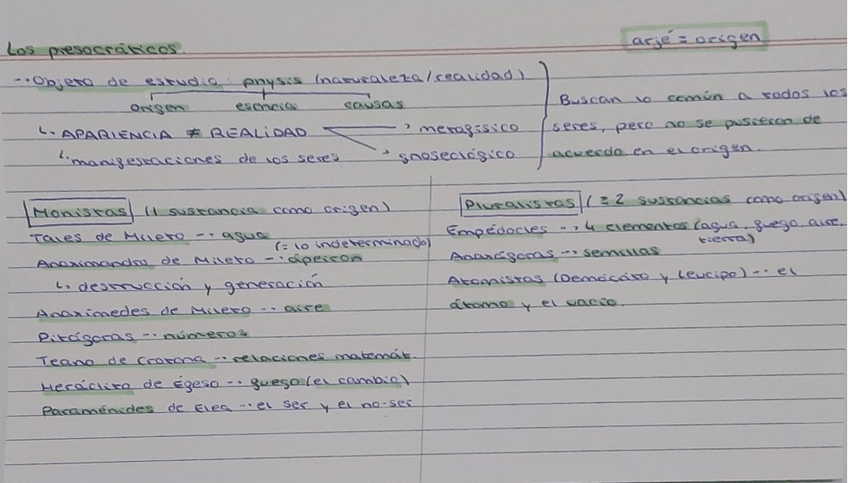 Los presocráticos.
arjé = origen
-·Objeto de estudio: physis (naturaleza/realidad)
origen esencia causas
↳ APARIENCIA ≠ REALIDAD → metafísico
↳ manifestaciones de los seres → gnoseológico
Buscan lo común a todos los
seres, pero no se pusieron de
acuerdo en el origen.
Monistas (1 sustancia como origen)
Tales de Mileto -·· agua
(= lo indeterminado)
Anaximandro de Mileto -·· ápeiron
↳ destrucción y generación
Anaxímedes de Mileto -·· aire
Pitágoras -·· números
Teano de Crotona -·· relaciones matemát.
Heráclito de Éfeso -·· fuego (el cambio)
Paraménides de Elea -·· el ser y el no-ser
Pluralistas (≥ 2 sustancias como origen)
Empédocles -·· 4 elementos (agua, fuego, aire,
tierra)
Anaxágoras -·· semillas
Atomistas (Demócrito y Leucipo) -·· el
átomo y el vacío.